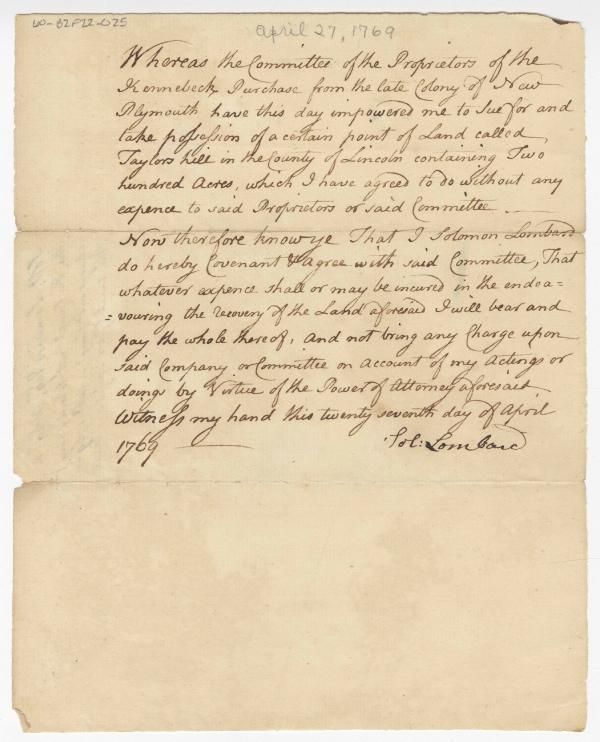 60-B2F22-025
April 27, 1769
Whereas the Committee of the Proprietors of the
Kennebeck Purchase from the late Colony of New
Plymouth have this day impowered me to Sue for and
take possession of a certain point of Land called
Taylors hill in the County of Lincoln containing Two
hundred Acres, which I have agreed to do without any
expence to said Proprietors or said Committee —
Now therefore know ye That I Solomon Lombard
do hereby Covenant & Agree with said Committee, That
whatever expence shall or may be incured in the endea=
=vouring the recovery of the Land aforesaid I will bear and
pay the whole thereof, and not bring any Charge upon
said Company or Committee on account of my Actings or
doings by Virtue of the Power of Attorney aforesaid
Witness my hand this twenty seventh day of April
1769 —
Sol: Lombard